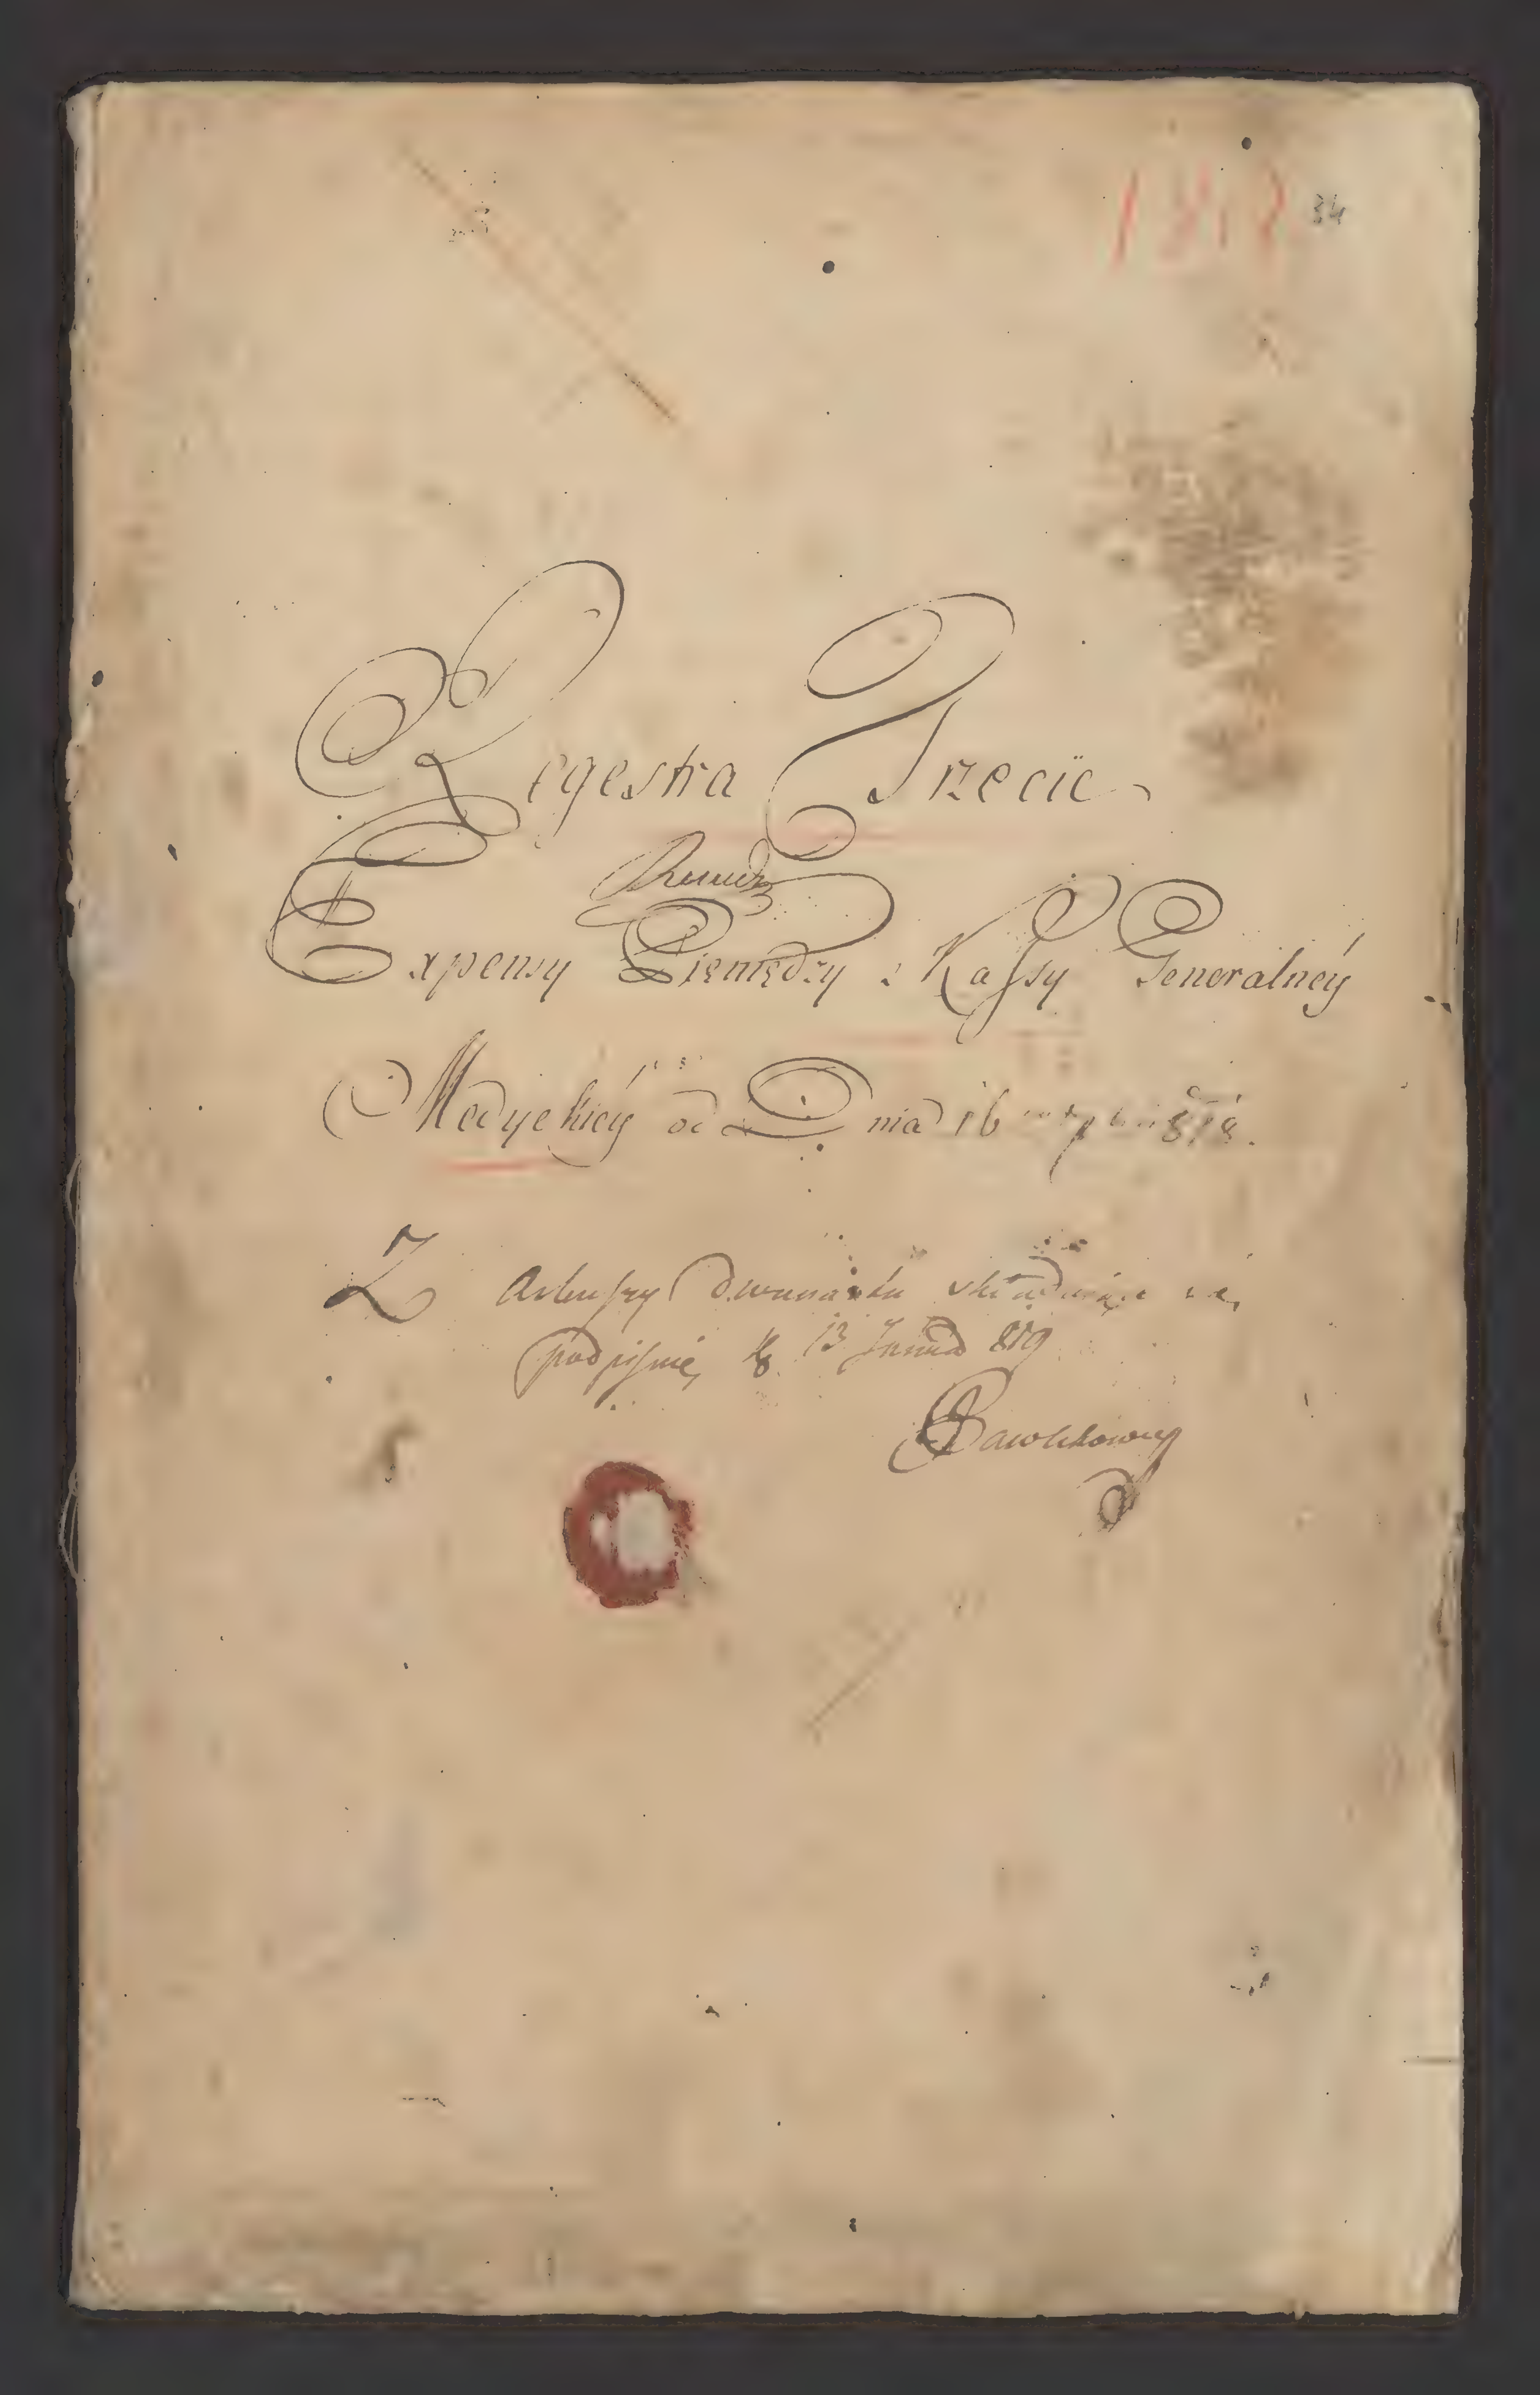 1818 34
Regestra Trzecie
Expensy Pieniędzy z Kassy Generalney
Medyckiey od Dnia 16 818.
Z Arkuszy dwunastu składające się
podpisuię 13 Januar 819
Pawlikowsky